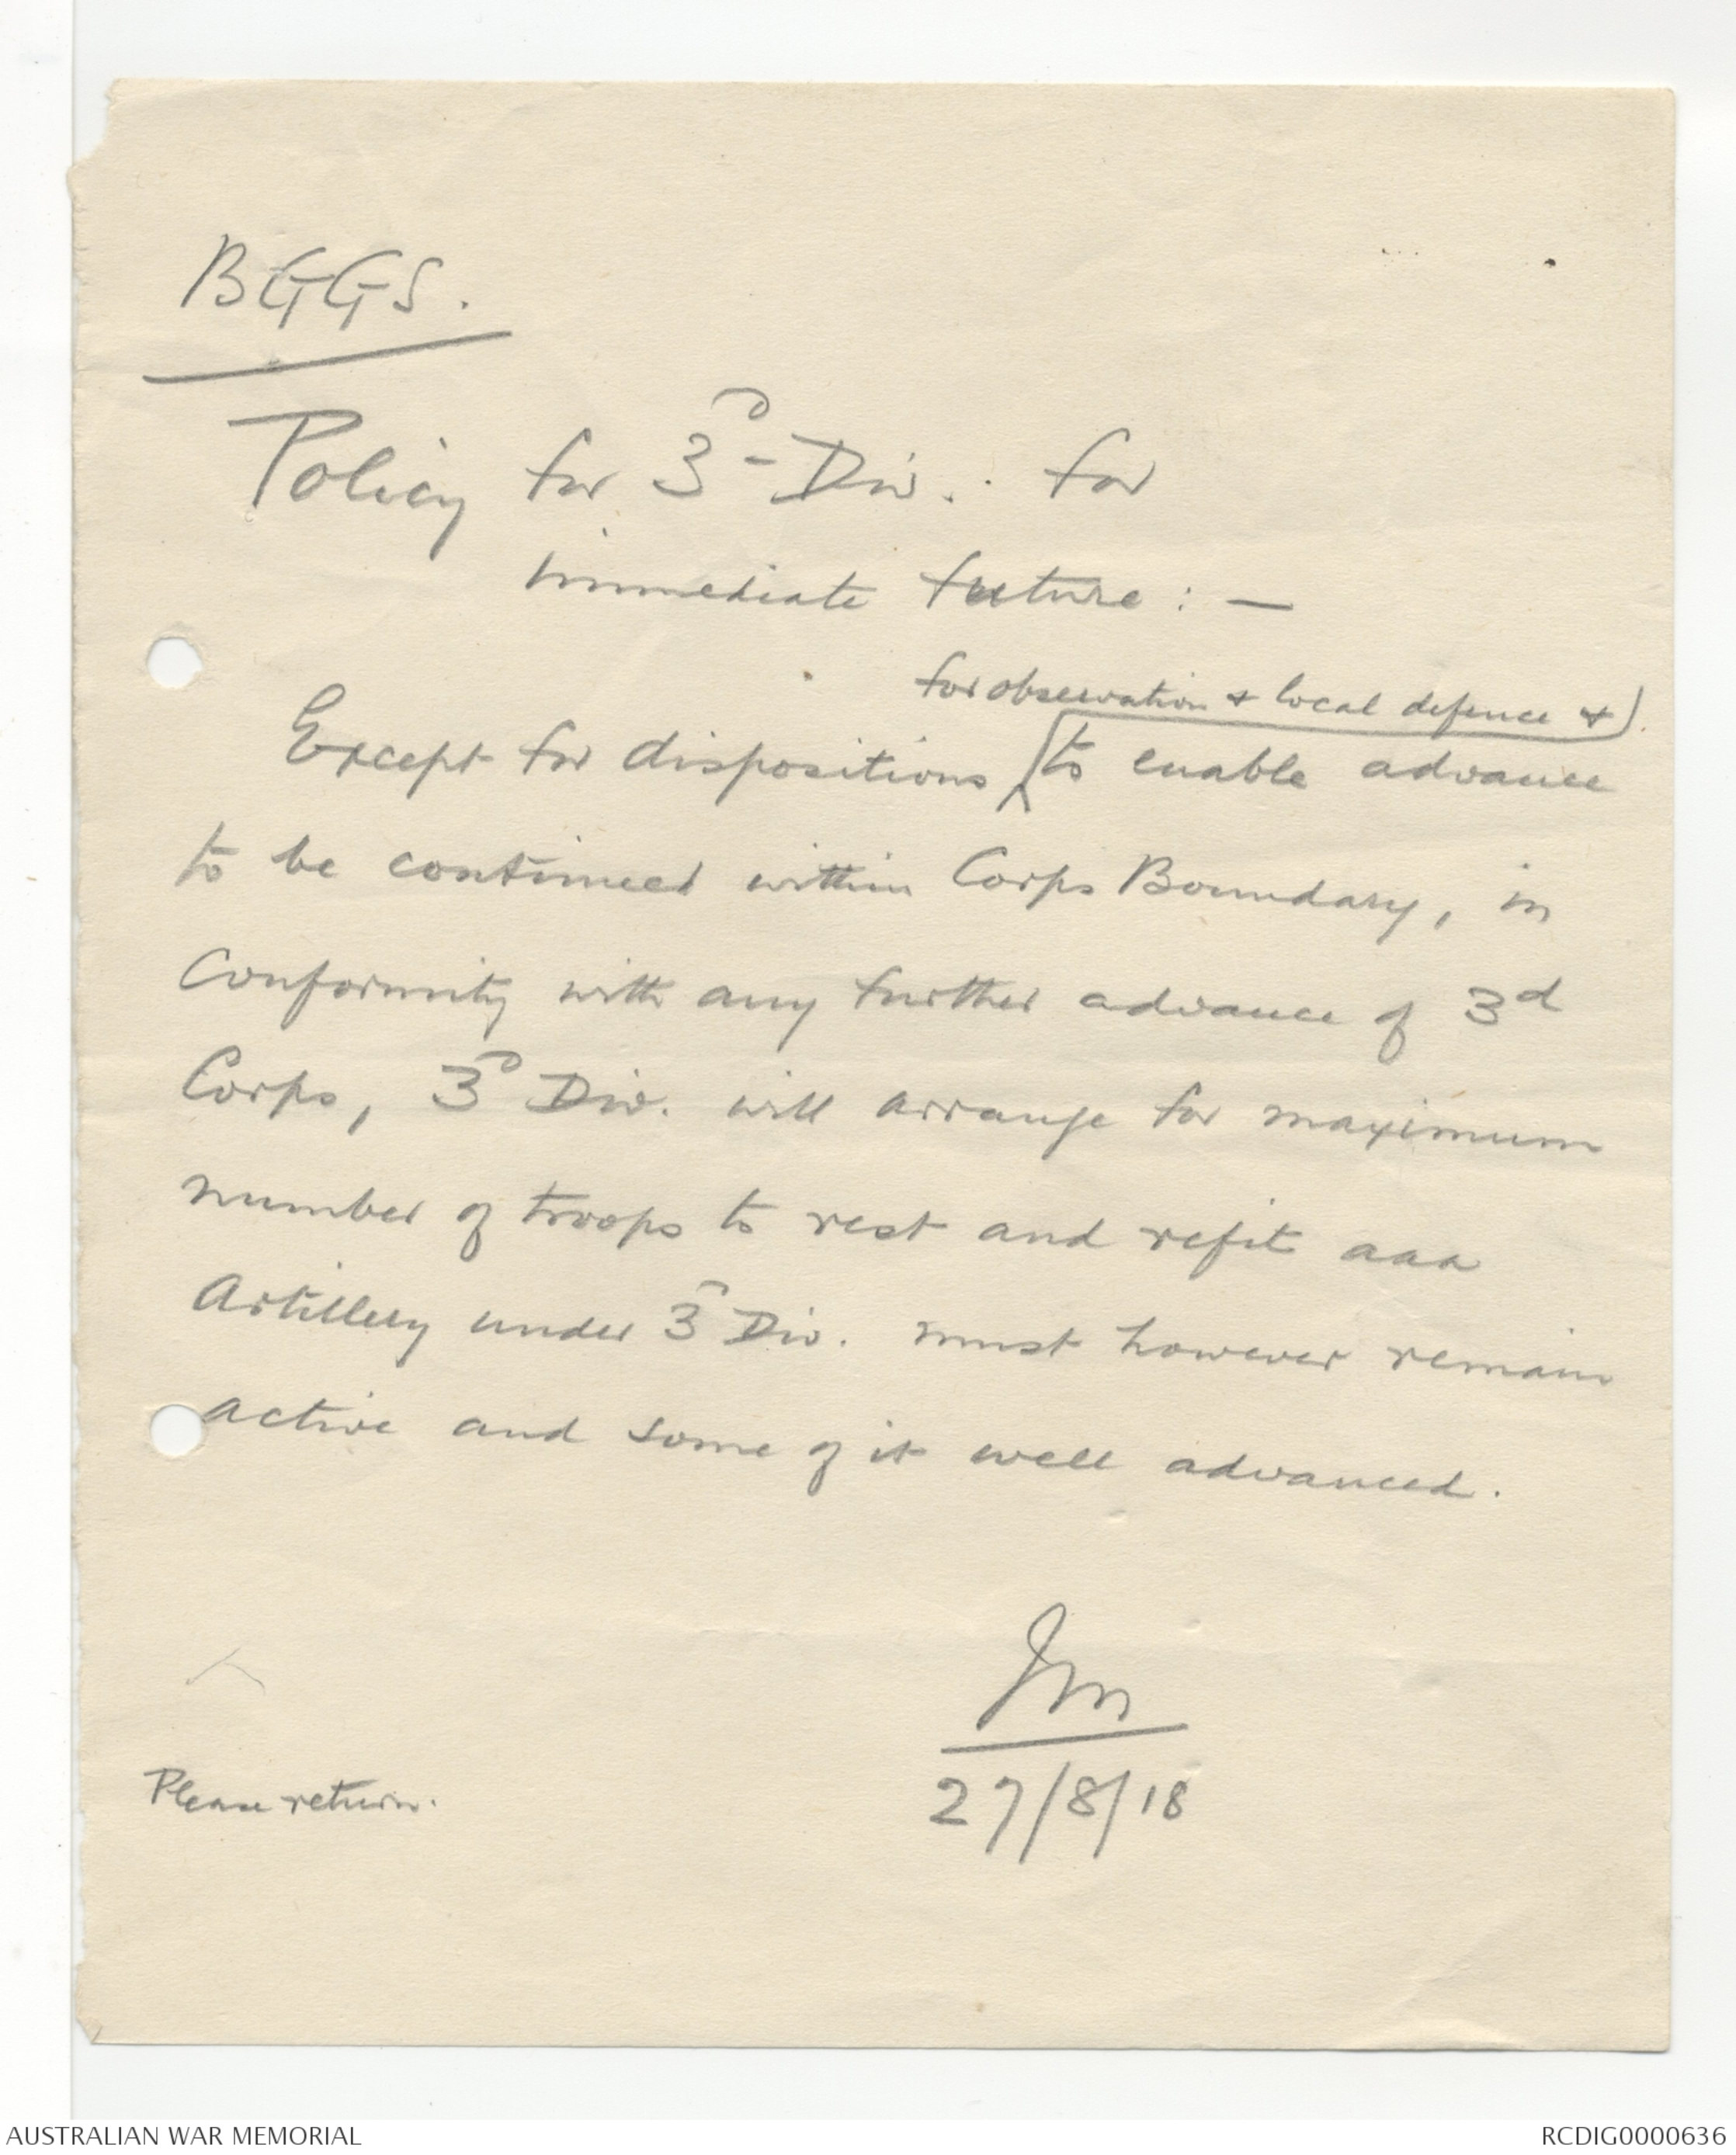 BGGS.
Policy for 3d Div. for
immediate future: —
for observation & local defence &
Except for dispositions to enable advance
to be continued within Corps Boundary, in
conformity with any further advance of 3d
Corps, 3d Div. will arrange for maximum
number of troops to rest and refit aaa
Artillery under 3d Div. must however remain
active and some of it well advanced.
JM
27/8/18
Please return.
AUSTRALIAN WAR MEMORIAL
RCDIG0000636